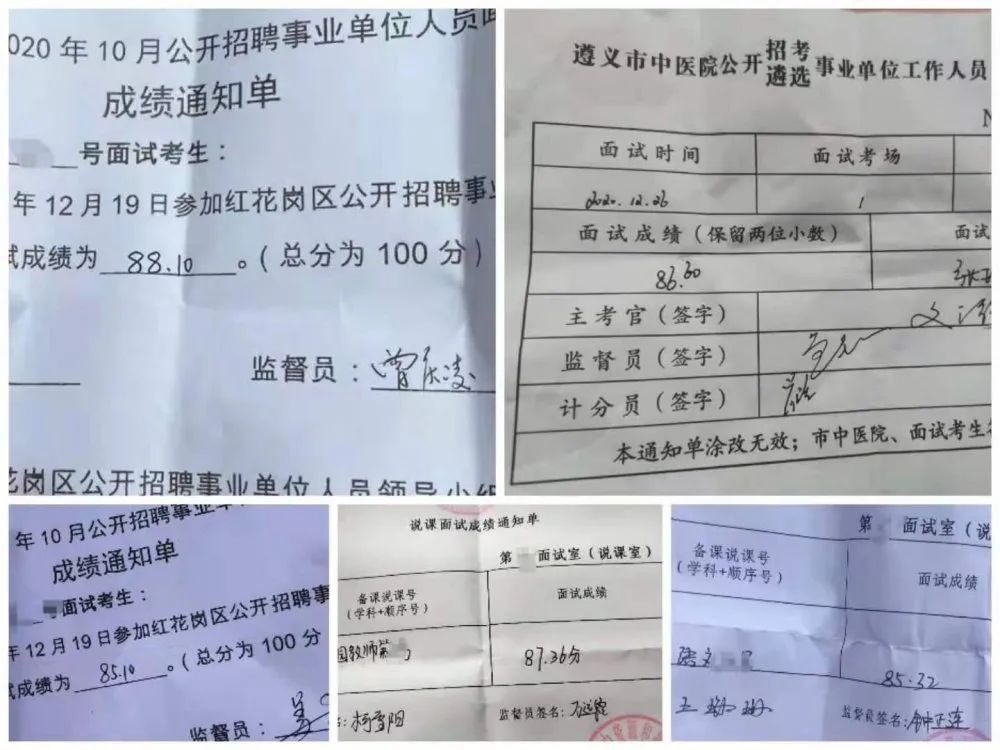 020年10月公开招聘事业单位人员面
成绩通知单
号面试考生：
年12月19日参加红花岗区公开招聘事业
试成绩为 88.10 。（总分为100分）
监督员：
花岗区公开招聘事业单位人员领导小组
遵义市中医院公开招考遴选事业单位工作人员
面试时间 面试考场
2020.12.26 1
面试成绩（保留两位小数） 面试
86.60
主考官（签字）
监督员（签字）
计分员（签字）
本通知单涂改无效；市中医院、面试考生
年10月公开招聘事业单
成绩通知单
号面试考生：
年12月19日参加红花岗区公开招聘事
试成绩为 85.10 。（总分为100分
监督员：
说课面试成绩通知单
第 面试室（说课室）
备课说课号
（学科+顺序号） 面试成绩
87.36分
监督员签名：
第 面试室（说
备课说课号
（学科+顺序号） 面试成绩
语文 85.32
监督员签名：